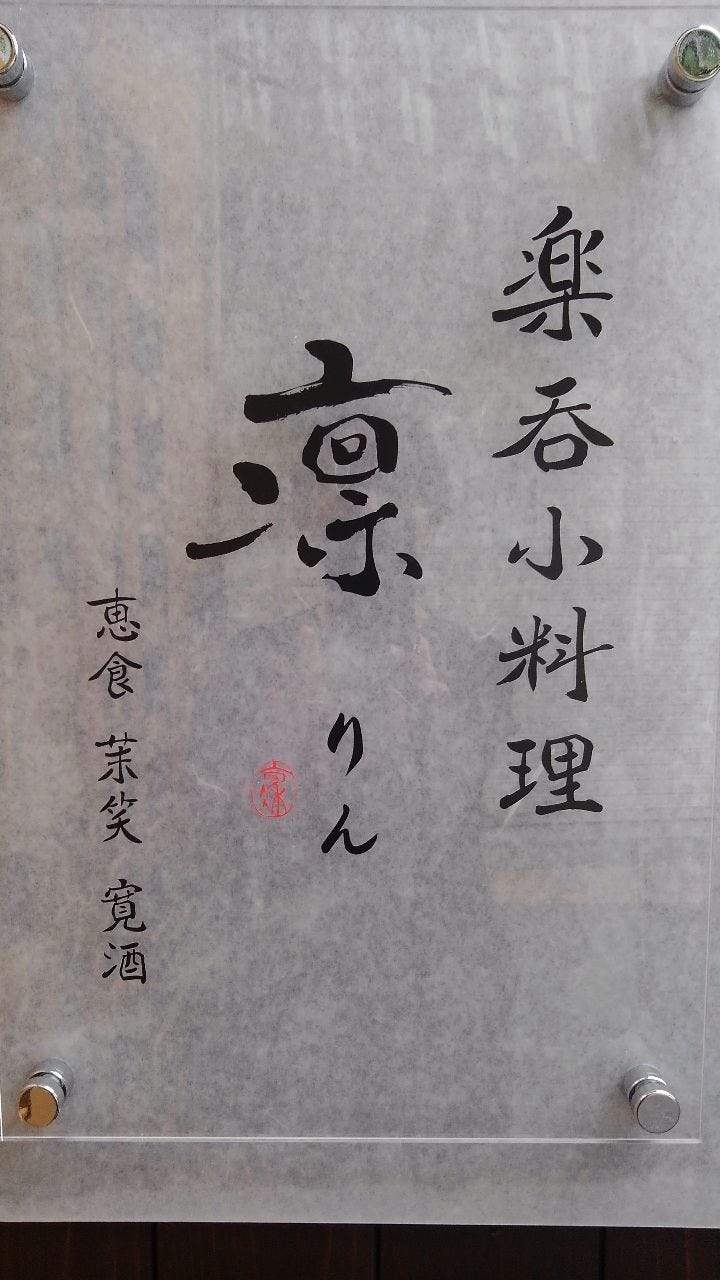 楽呑小料理
凛
りん
恵食 茉笑 寛酒